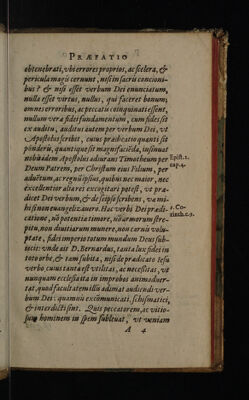 PRÆFATIO
obtenebrati, vbi errores proprios, ac scelera, &
pericula magis cernunt, nisi in sacris concioni-
bus? & nisi esset verbum Dei enunciatum,
nulla esset virtus, nullus, qui faceret bonum,
omnes erroribus, ac peccatis coinquinati essent,
nullum vera fidei fundamentum, cum fides sit
ex auditu, auditus autem per verbum Dei, vt
Apostolus scribit, cuius prædicatio quantis sit
ponderis, quantiq́ue sit magnifaciēda, insinuat
nobis idem Apostolus adiurans Timotheum per
Deum Patrem, per Christum eius Filium, per
aduētum, ac regnū ipsius, quibus nec maior, nec
excellentior altares excogitari potest, vt præ-
dicet Dei verbum, & de seipso scribens, va mi-
hi si non euangelizauero. Hac verbi Dei prædi-
catione, nō potentia timore, nō armorum stre-
pitu, non diuitiarum munere, non carnis volu-
ptate, fidei imperio totum mundum Deus sub-
iecit: vnde ait D. Bernardus, tanta lux fidei in
toto orbe, & tam subita, nisi de prædicato Iesu
verbo, cuius tanta est vtilitas, ac necessitas, vt
nunquam ecclesia ita in improbos animaduer-
tat, quod facultatem illis adimat audiendi ver-
bum Dei: quamuis excōmunicati, schismatici,
& interdicti sint. Quis peccatorem, ac vitio-
sum hominem in spem subleuat, vt veniam
A 4
Epist. 1.
cap. 4.
1. Co-
rinth. c. 9.